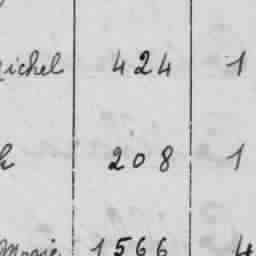 ichel 424 1
208 1
Marie 1566 4